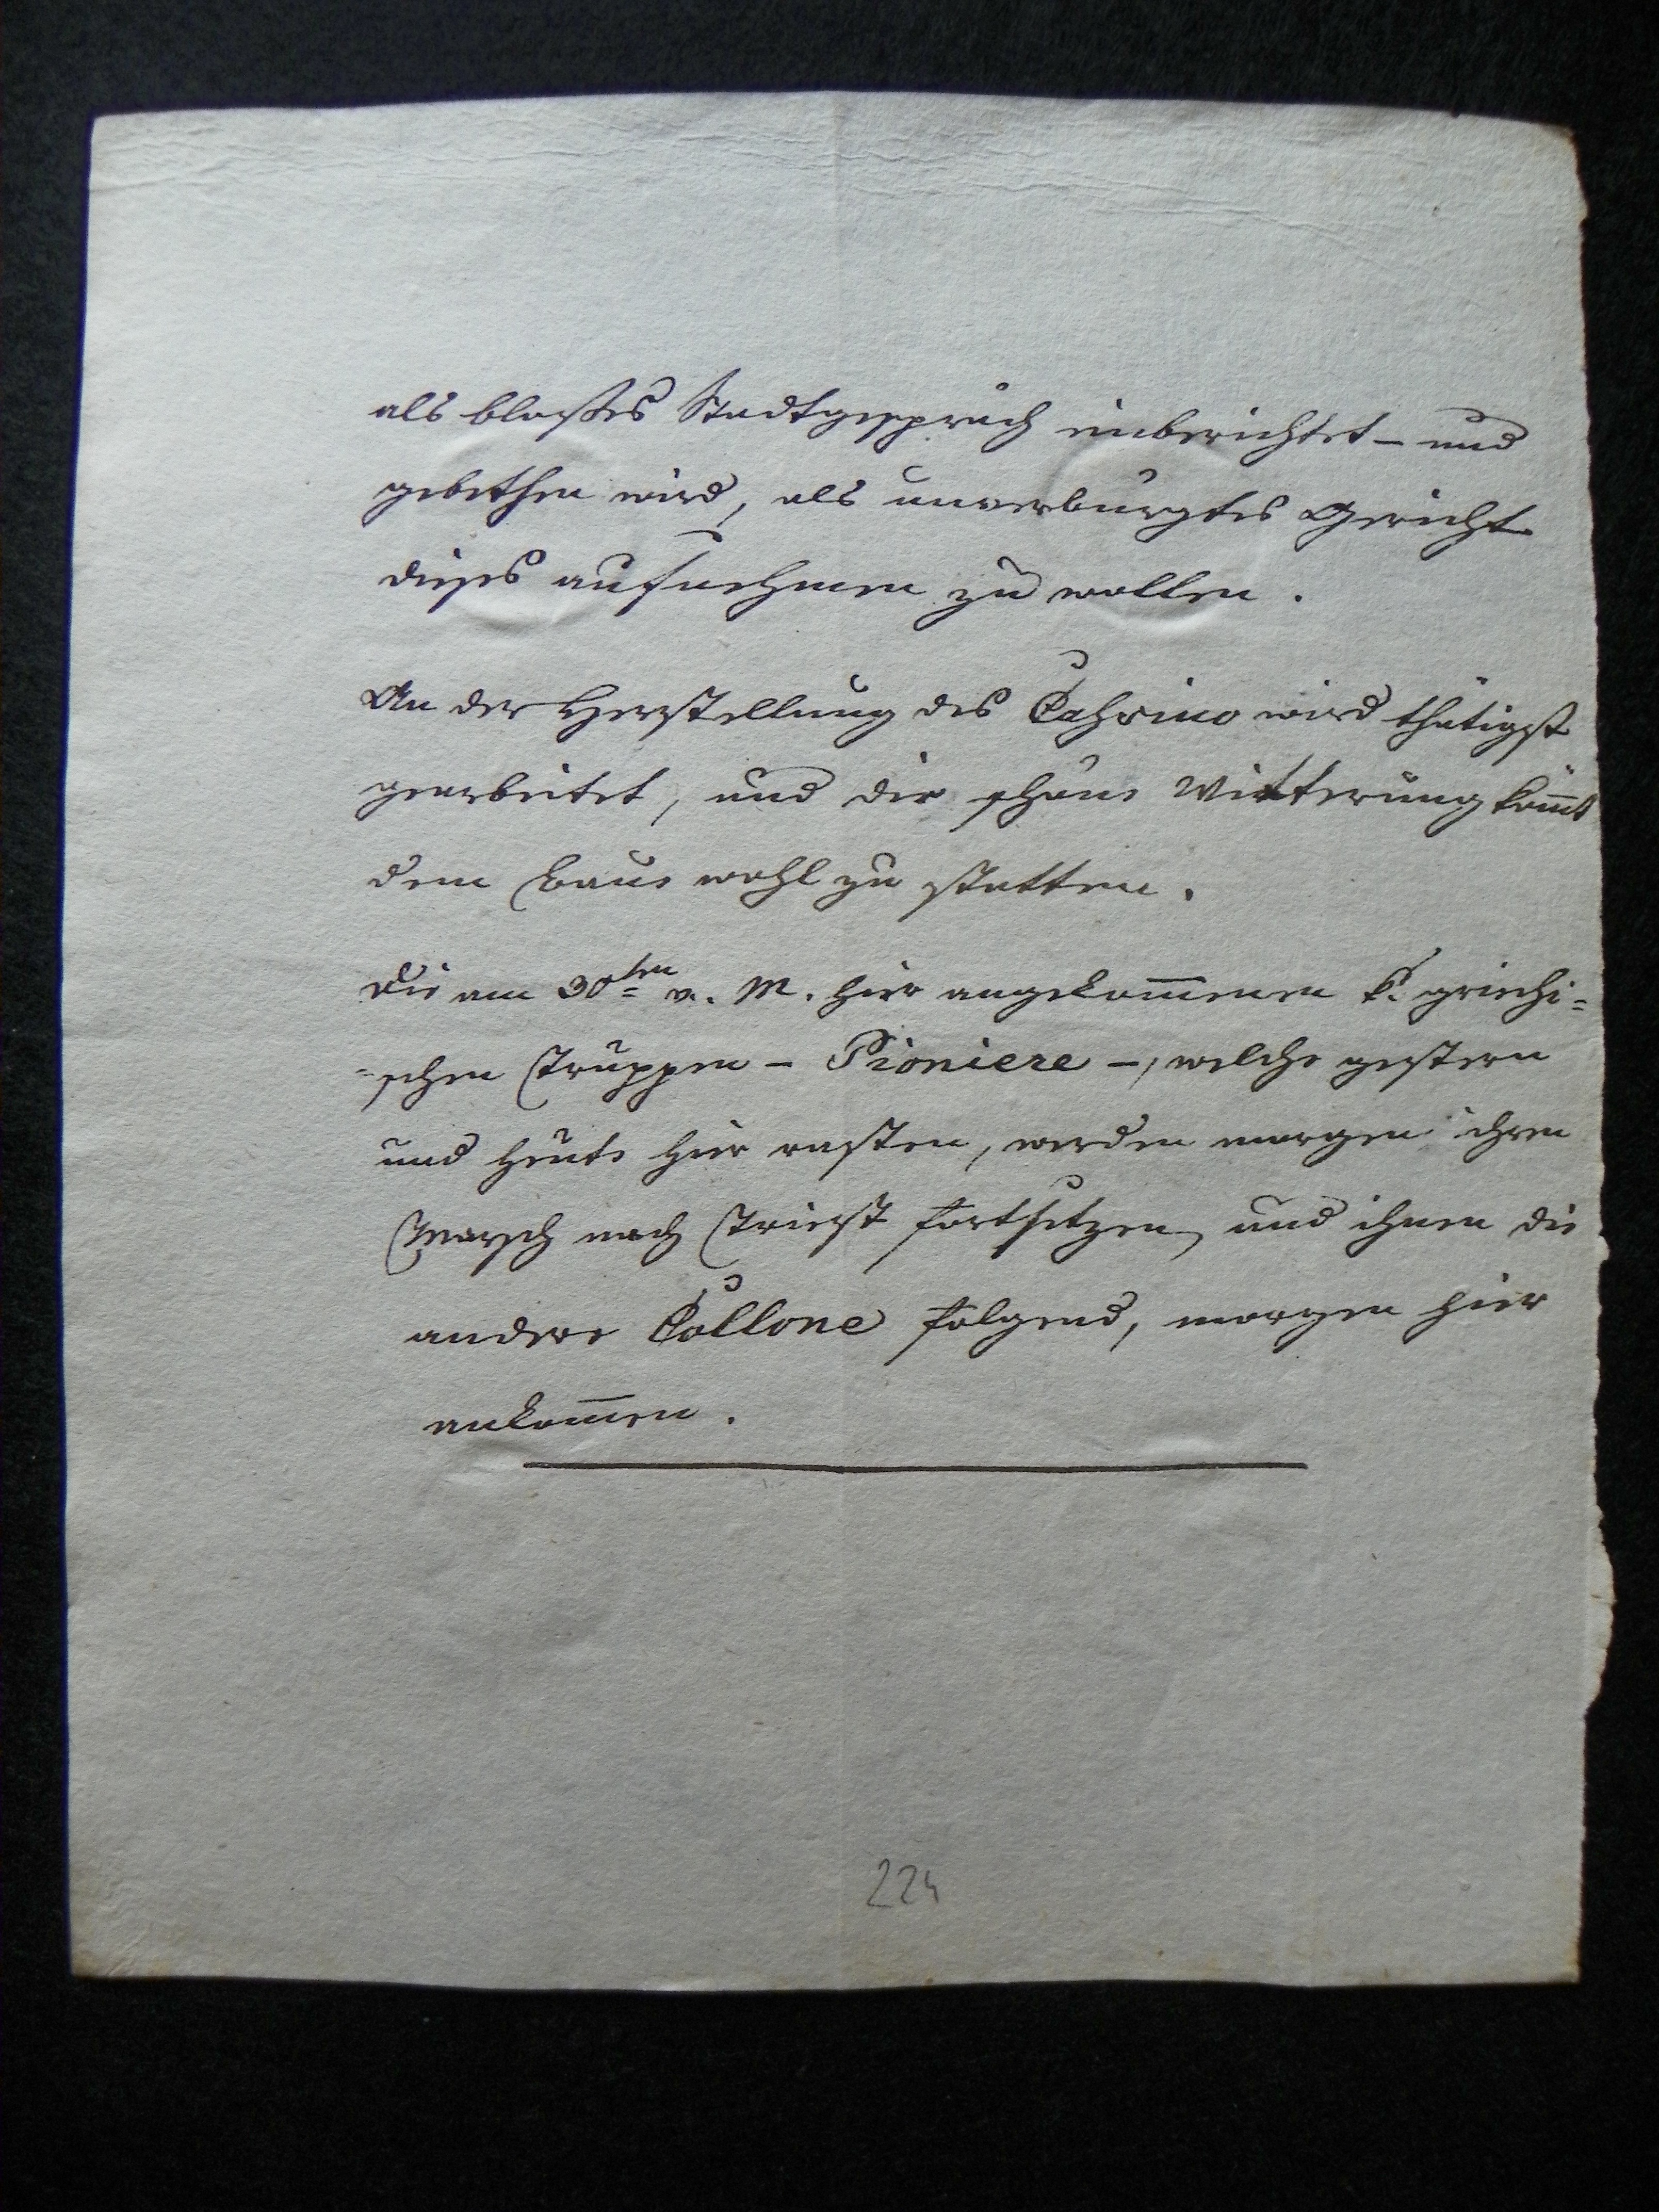 als bloßes Stadtgespräch einberichtet – und
gebethen wird, als unverbürgtes Gerücht
dieses aufnehmen zu wollen.
An der Herstellung des Cahsino wird thätigst
gearbeitet, und die schöne Witterung kom̅t
dem Baue wohl zu statten.
Die am 30ten v. M. hier angekom̅enen k. griechi=
=schen Truppen – Pioniere –, welche gestern
und heute hier rasten, werden morgen ihren
Marsch nach Triest fortsetzen, und ihnen die
andere Collone folgend, morgen hier
ankom̅en.
224